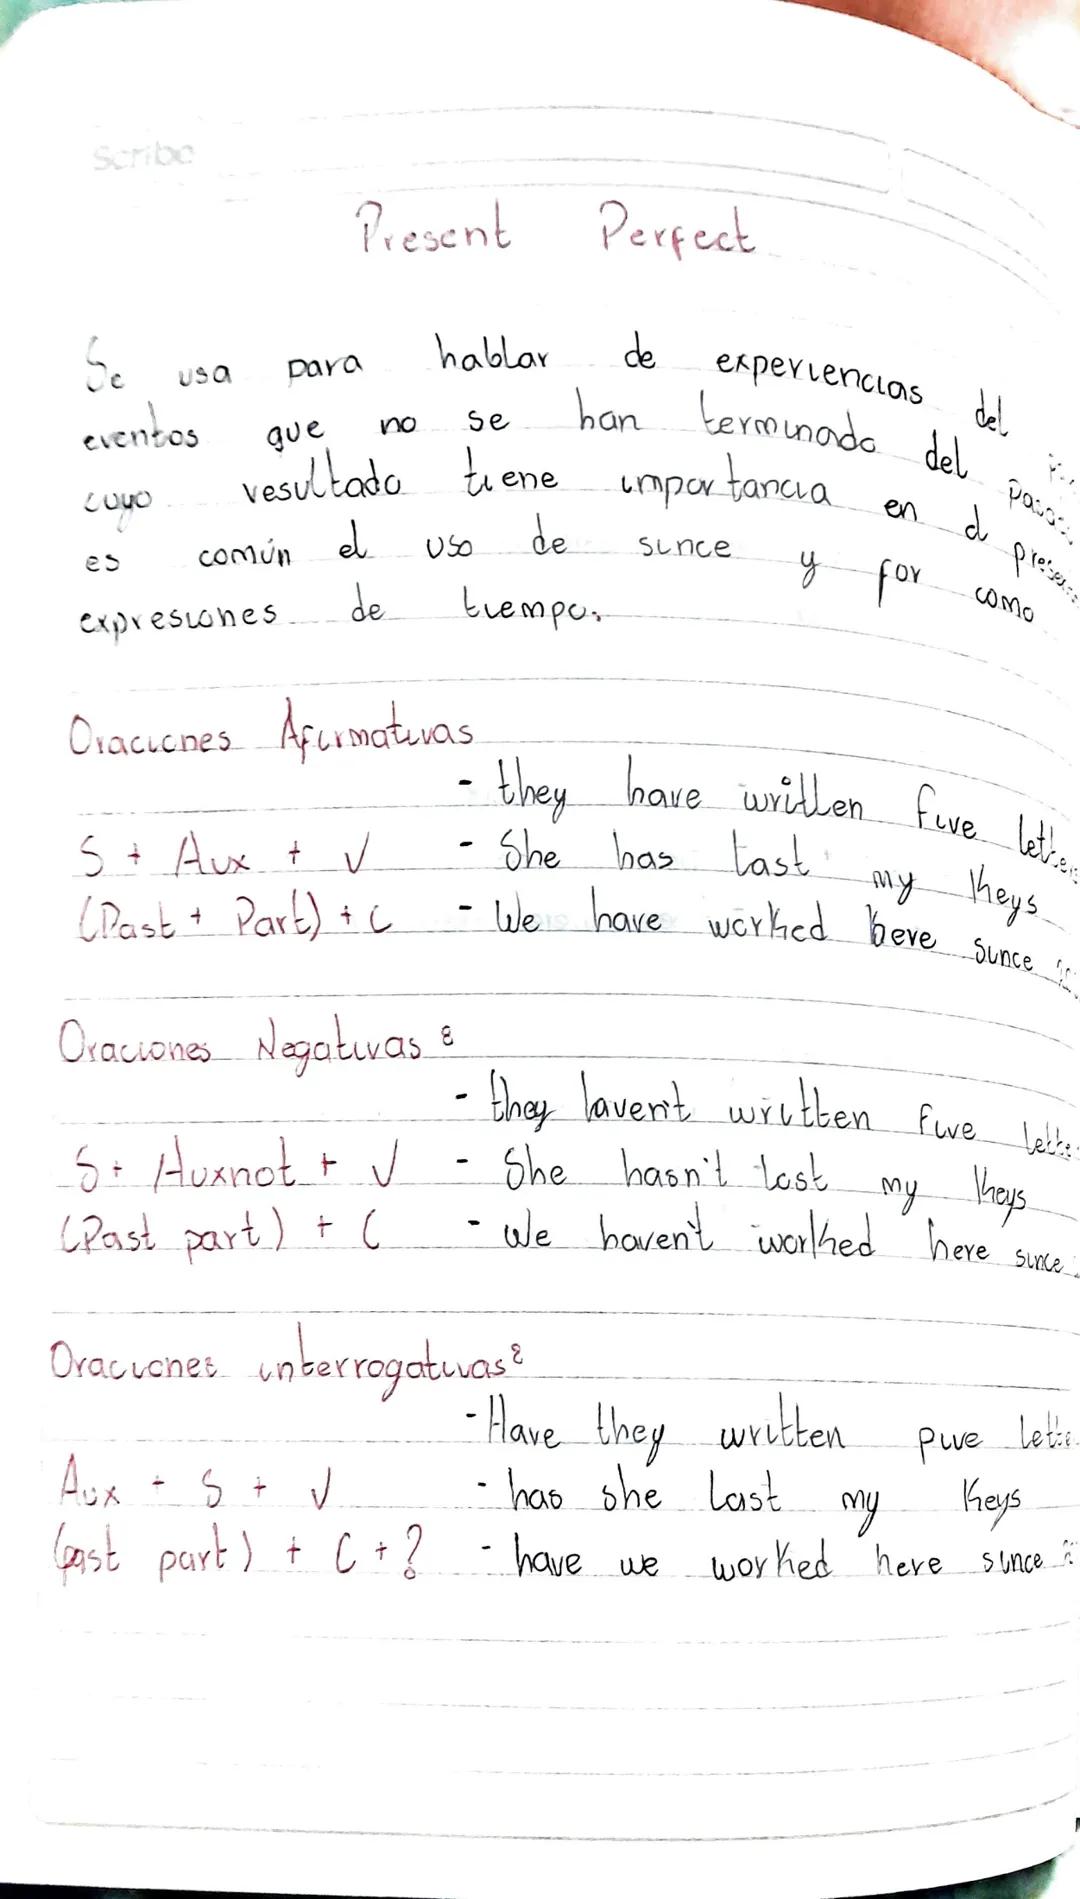 Scribe
Present Perfect
Se usa para hablar de experiencias del
eventos que no se han terminado del pasado
cuyo resultado tiene importancia en el presente
es común el uso de since y for como
expresiones de tiempo.
Oraciones Afirmativas
- they have written five letters
S + Aux + V - She has last my Keys
(Past + Part) + C - We have worked here since
Oraciones Negativas :
- they haven't written five
S + Auxnot + V - She hasn't lost my Keys
(Past part) + C - We haven't worked here since
Oraciones interrogativas :
- Have they written pive
Aux + S + V - has she last my Keys
(past part) + C + ? - have we worked here since